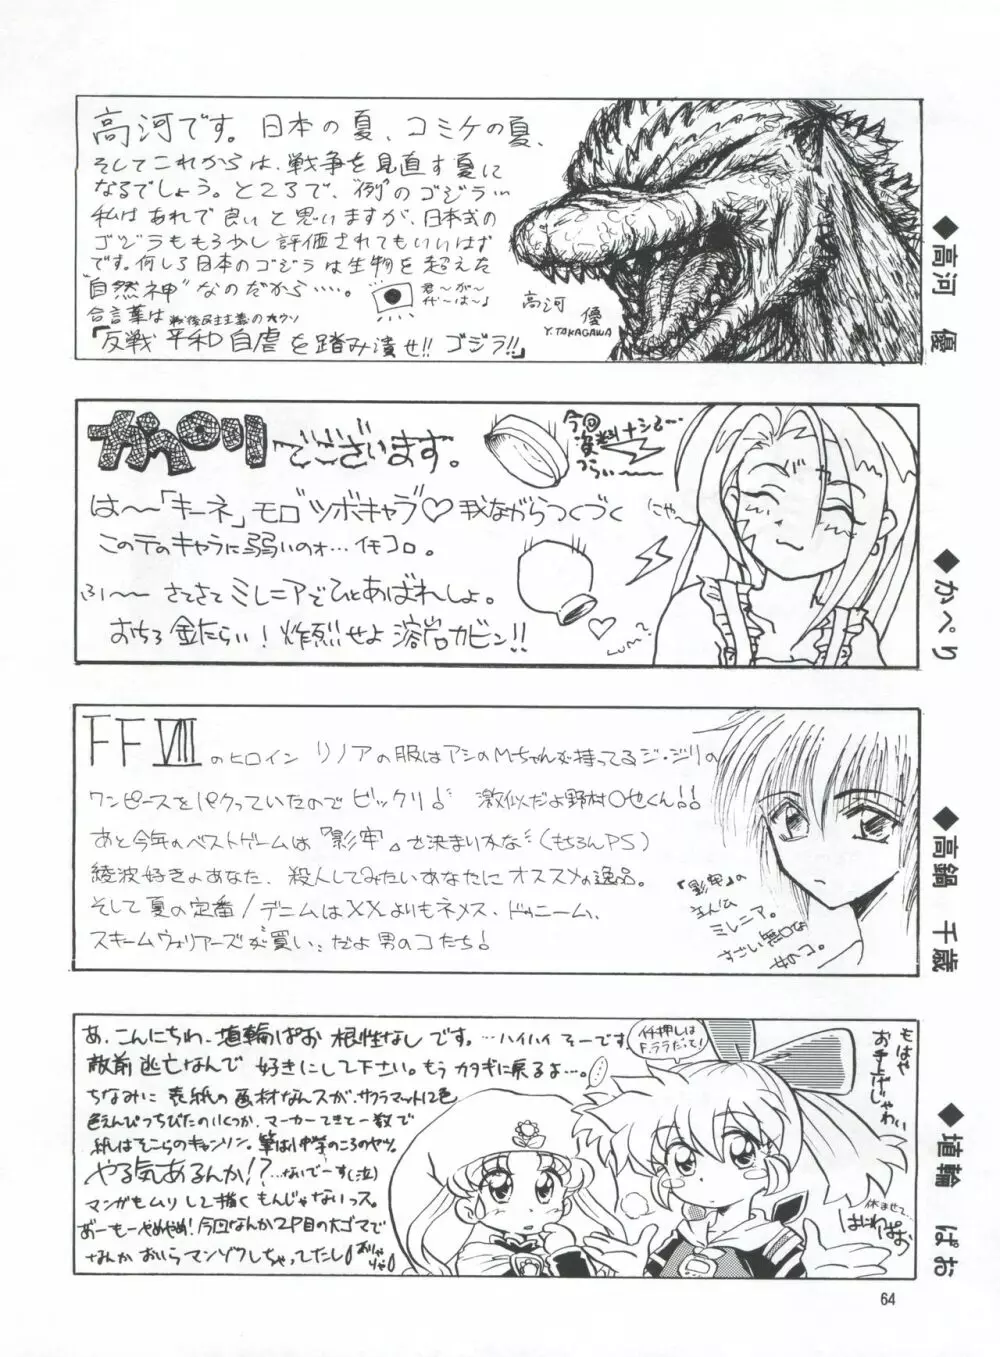 高河です。日本の夏、コミケの夏、
そしてこれからは、戦争を見直す夏に
なるでしょう。ところで、"例"のゴジラ…
私はあれで良いと思いますが、日本式の
ゴジラももう少し評価されてもいいはず
です。何しろ日本のゴジラは生物を超えた
"自然神"なのだから…。
君〜が〜
代〜は〜♪
合言葉は 戦後民主主義の
「反戦平和自虐を踏み潰せ!!ゴジラ!!」
高河 優
Y.TAKAGAWA
◆高河 優
かぺりでございます。
今回資料ナシで…
つらい〜〜
は〜「キーネ」モロツボキャラ♡我ながらつくづく
このテのキャラに弱いのォ…イチコロ。
ふい〜〜 さてさてミレニアでひとあばれしよ。
おちろ金だらい!炸烈せよ溶岩カビン!!
にゃ〜
◆かぺり
FFⅧのヒロイン リノアの服はアシのMちゃんが持ってるジ・ジリの
ワンピースをパクっていたのでビックリ!激似だよ野村〇也くん!!
あと今年のベストゲームは『影牢』で決まりかな(もちろんPS)
綾波好きのあなた、殺人してみたいあなたにオススメの逸品。
そして夏の定番/デニムはXXよりもネメス、ドゥニーム、
スキームウォリアーズが買い、だよ男のコたち!
『影牢』の
主人公
ミレニア。
すごい無口な
女のコ。
◆高鍋 千歳
あ、こんにちわ、埴輪ぱお 根性なしです。…ハイハイ そーです。
敵前逃亡なんで 好きにして下さい。もうカタギに戻るよ…。
ちなみに 表紙の画材なんスが、サクラマット12色
色えんぴつちびたのいくつか、マーカーてきとー数で
紙はそこらのキャンソン。筆は中学のころのヤツ。
やる気あるんか!?…ないでーす(泣)
マンガもムリして描くもんじゃないっス。
あーもーやめやめ!今回なんか2P目の大ゴマで
なんかおいらマンゾクしちゃってたし!
イチ押しは
F.ララだって!
もはや
お手上げじゃわい
休ませて…
はにわぱお
◆埴輪 ぱお
64